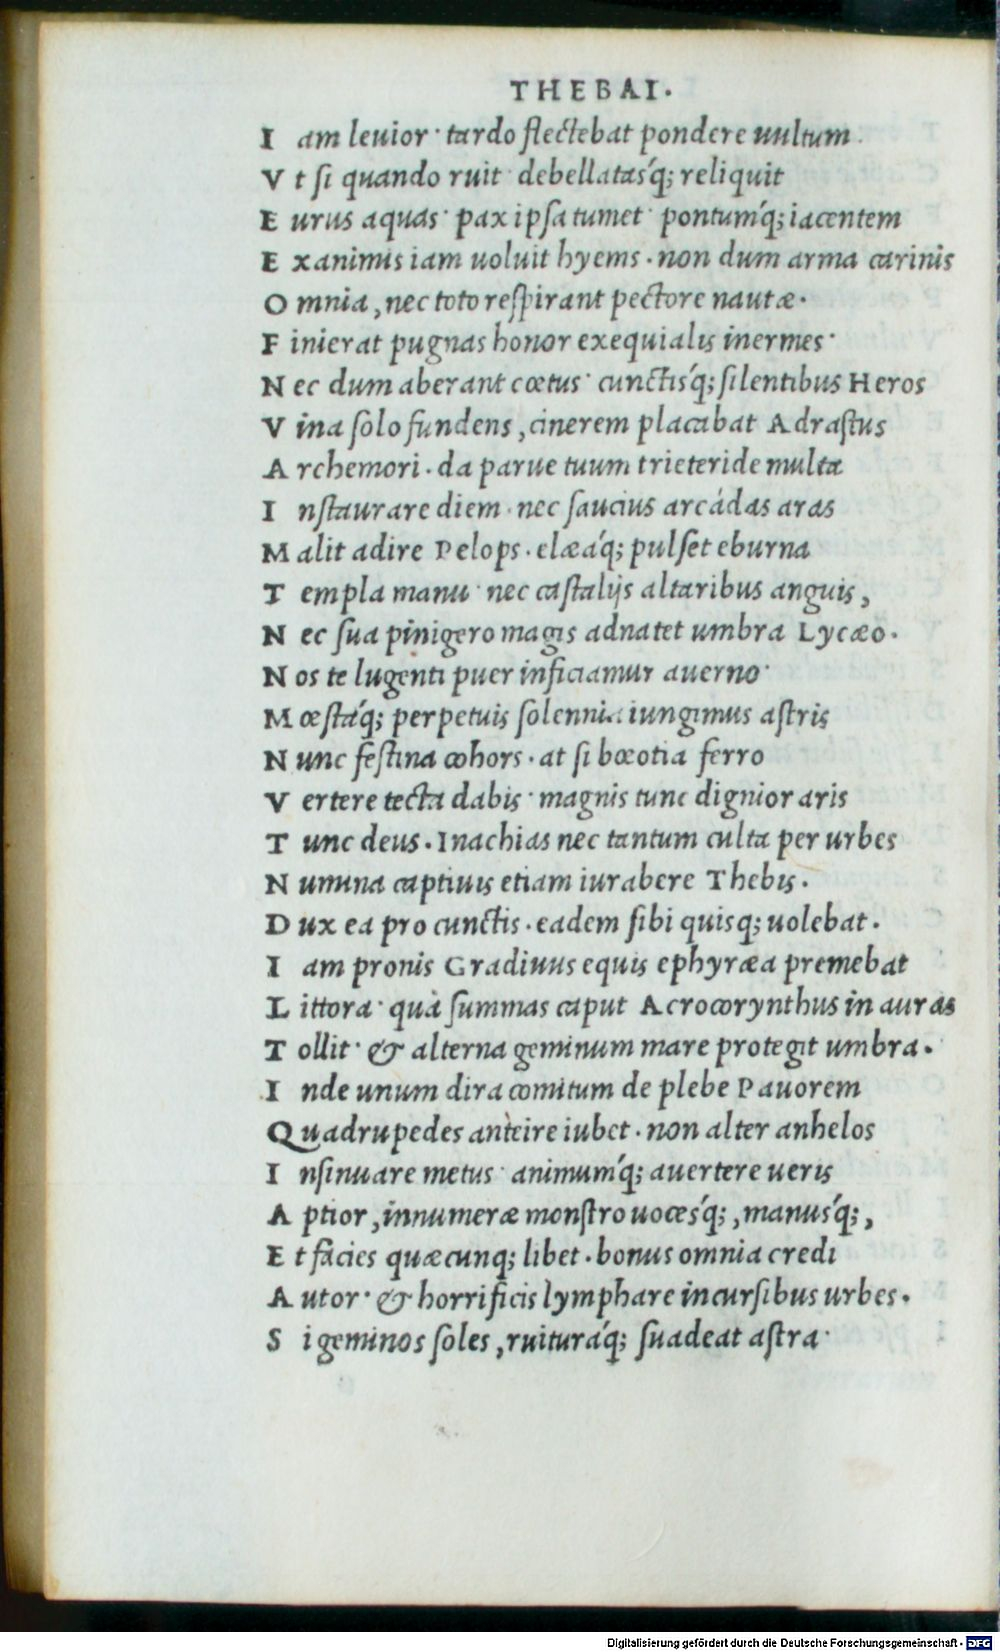 THEBAI.
I am leuior· tardo flectebat pondere uultum.
V t si quando ruit· debellatasq́; reliquit
E urus aquas· pax ipsa tumet· pontumq́; iacentem
E xanimis iam uoluit hyems. non dum arma carinis
O mnia, nec toto respirant pectore nautæ.
F inierat pugnas honor exequialis inermes·
N ec dum aberant cœtus· cunctisq́; silentibus Heros
V ina solo fundens, cinerem placabat Adrastus
A rchemori. da parue tuum trieteride multa
I nstaurare diem· nec saucius arcádas aras
M alit adire Pelops. elæáq́; pulset eburna
T empla manu· nec castalijs altaribus anguis,
N ec sua pinigero magis adnatet umbra Lycæo.
N os te lugenti puer inficiamur auerno·
M œstáq́; perpetuis solennia iungimus astris
N unc festina cohors. at si bœotia ferro
V ertere tecta dabis· magnis tunc dignior aris
T unc deus. Inachias nec tantum culta per urbes
N umina captiuis etiam iurabere Thebis.
D ux ea pro cunctis. eadem sibi quisq; uolebat.
I am pronis Gradiuus equis ephyræa premebat
L ittora· quà summas caput Acrocorynthus in auras
T ollit· & alterna geminum mare protegit umbra.
I nde unum dira comitum de plebe Pauorem
Q uadrupedes anteire iubet. non alter anhelos
I nsinuare metus· animumq́; auertere ueris
A ptior, innumeræ monstro uocesq́;, manusq́;,
E t facies quæcunq; libet. bonus omnia credi
A utor· & horrificis lymphare incursibus urbes.
S i geminos soles, ruituráq́; suadeat astra·
Digitalisierung gefördert durch die Deutsche Forschungsgemeinschaft - DFG